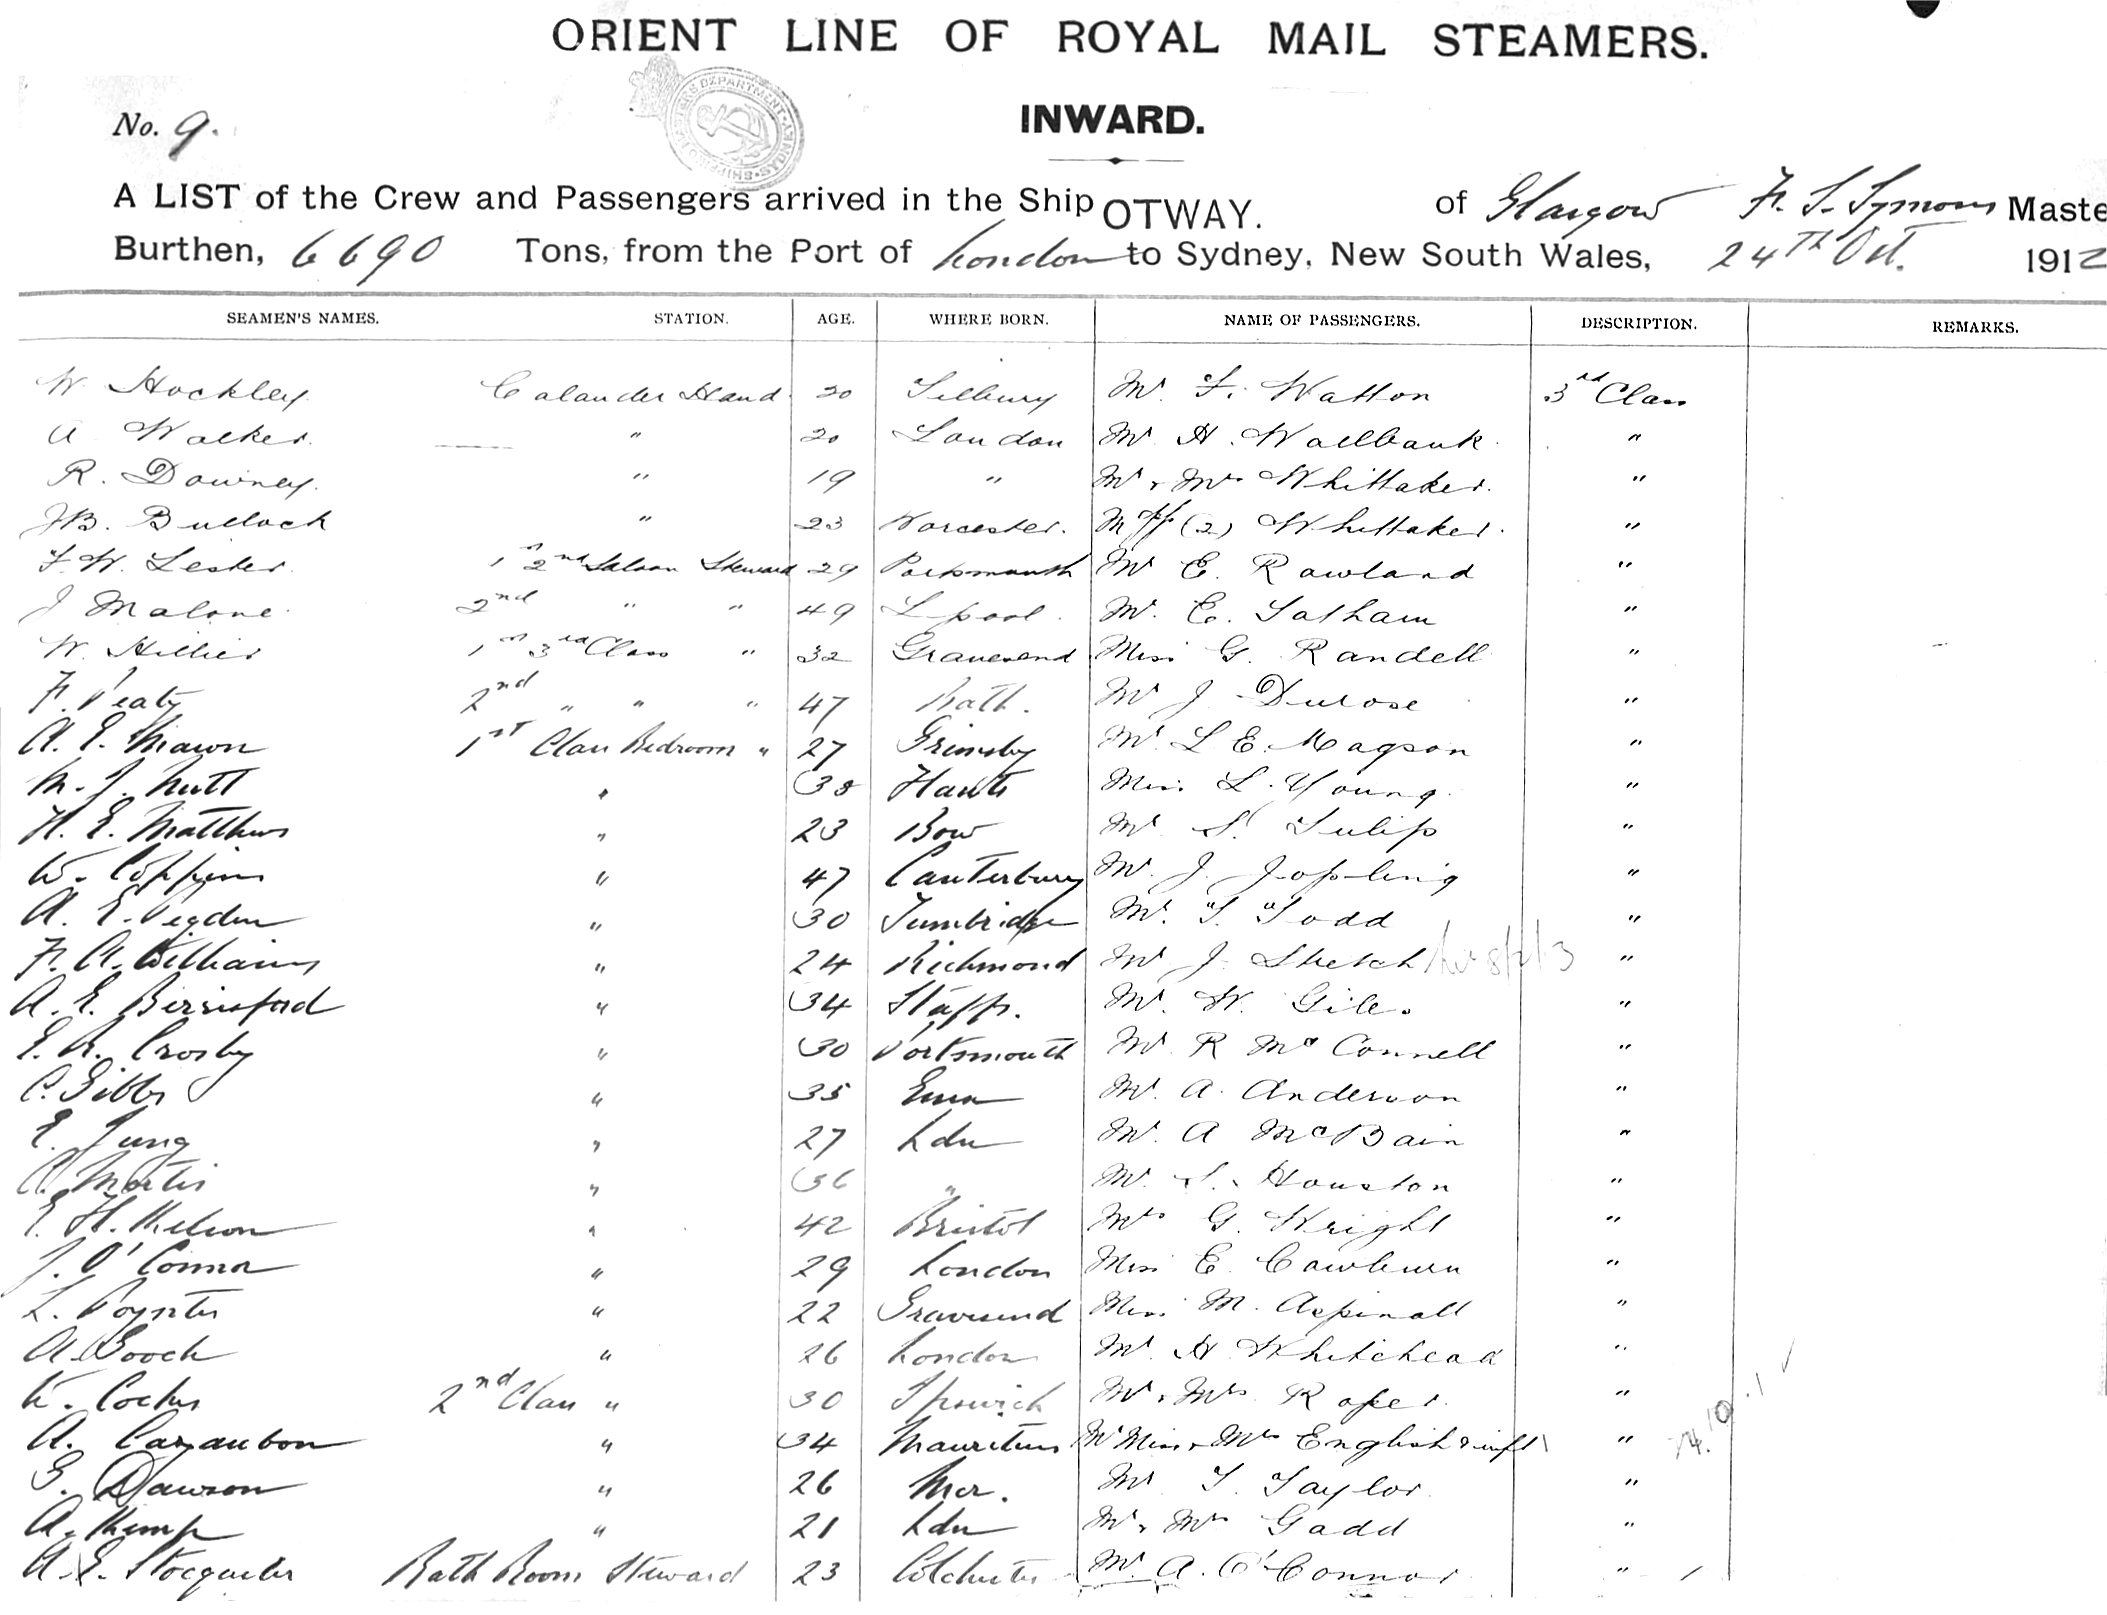 ORIENT LINE OF ROYAL MAIL STEAMERS.
SHIPPING MASTER'S DEPARTMENT SYDNEY
No. 9.
INWARD.
A LIST of the Crew and Passengers arrived in the Ship OTWAY. of Glasgow F. S. Symons Maste
Burthen, 6690 Tons, from the Port of London to Sydney, New South Wales, 24th Oct. 1912
SEAMEN'S NAMES. STATION. AGE. WHERE BORN. NAME OF PASSENGERS. DESCRIPTION. REMARKS.
W. Hockley. Calander Hand. 20 Tilbury Mr. F. Watton 3rd Class
A Walker. " 20 London Mr. H. Wallbank. "
R. Downey. " 19 " Mr & Mrs Whittaker. "
JB. Bullock " 23 Worcester. (2) Whittaker. "
F. W. Lester. 1st 2nd Saloon Steward 29 Portsmouth Mr E. Rowland "
J Malone. 2nd " " 49 L'pool. Mr. E. Tatham "
W. Hillier 1st 3rd Class " 32 Gravesend Miss G. Randell "
F. Peaty 2nd " " " 47 Bath. Mr J Durose "
A. E. Mawn 1st Class Bedroom " 27 Grimsby Mr. L E. Magson "
M. J. Nutt " 38 Hants Miss L. Young. "
H. E. Matthews " 23 Bow Mr S. Tulip "
W. Coppins " 47 Canterbury Mr. J. Jopling "
A. E. Pigden " 30 Tunbridge Mr. T. Todd "
F. A. Williams " 24 Richmond Mr J. Sketch "
A. E. Berrisford " 34 Staffs. Mr. W. Giles "
E. A. Crosby " 30 Portsmouth Mr. R McConnell "
C. Gibbs " 35 Mr. A. Anderson "
E. Jung " 27 Ldn Mr. A McBain "
" 36 " Mr. S. Houston "
E. H. Nelson " 42 Bristol Mrs G. Wright "
J. O'Connor " 29 London Miss E. Cawburn "
L. Poynter " 22 Gravesend Miss M. Aspinall "
A. Gooch " 26 London Mr. H Whitehead "
2nd Class " 30 Ipswich Mr & Mrs Roper. "
A. Cazaubon " 34 Mauritius Mr Miss & Mrs English & inft "
G. Dawson " 26 Mr T. Taylor. "
A. Kemp " 21 Ldn Mr & Mrs Gadd "
A. E. Stocqueler Bath Room Steward 23 Colchester Mr. A. O'Connor. "